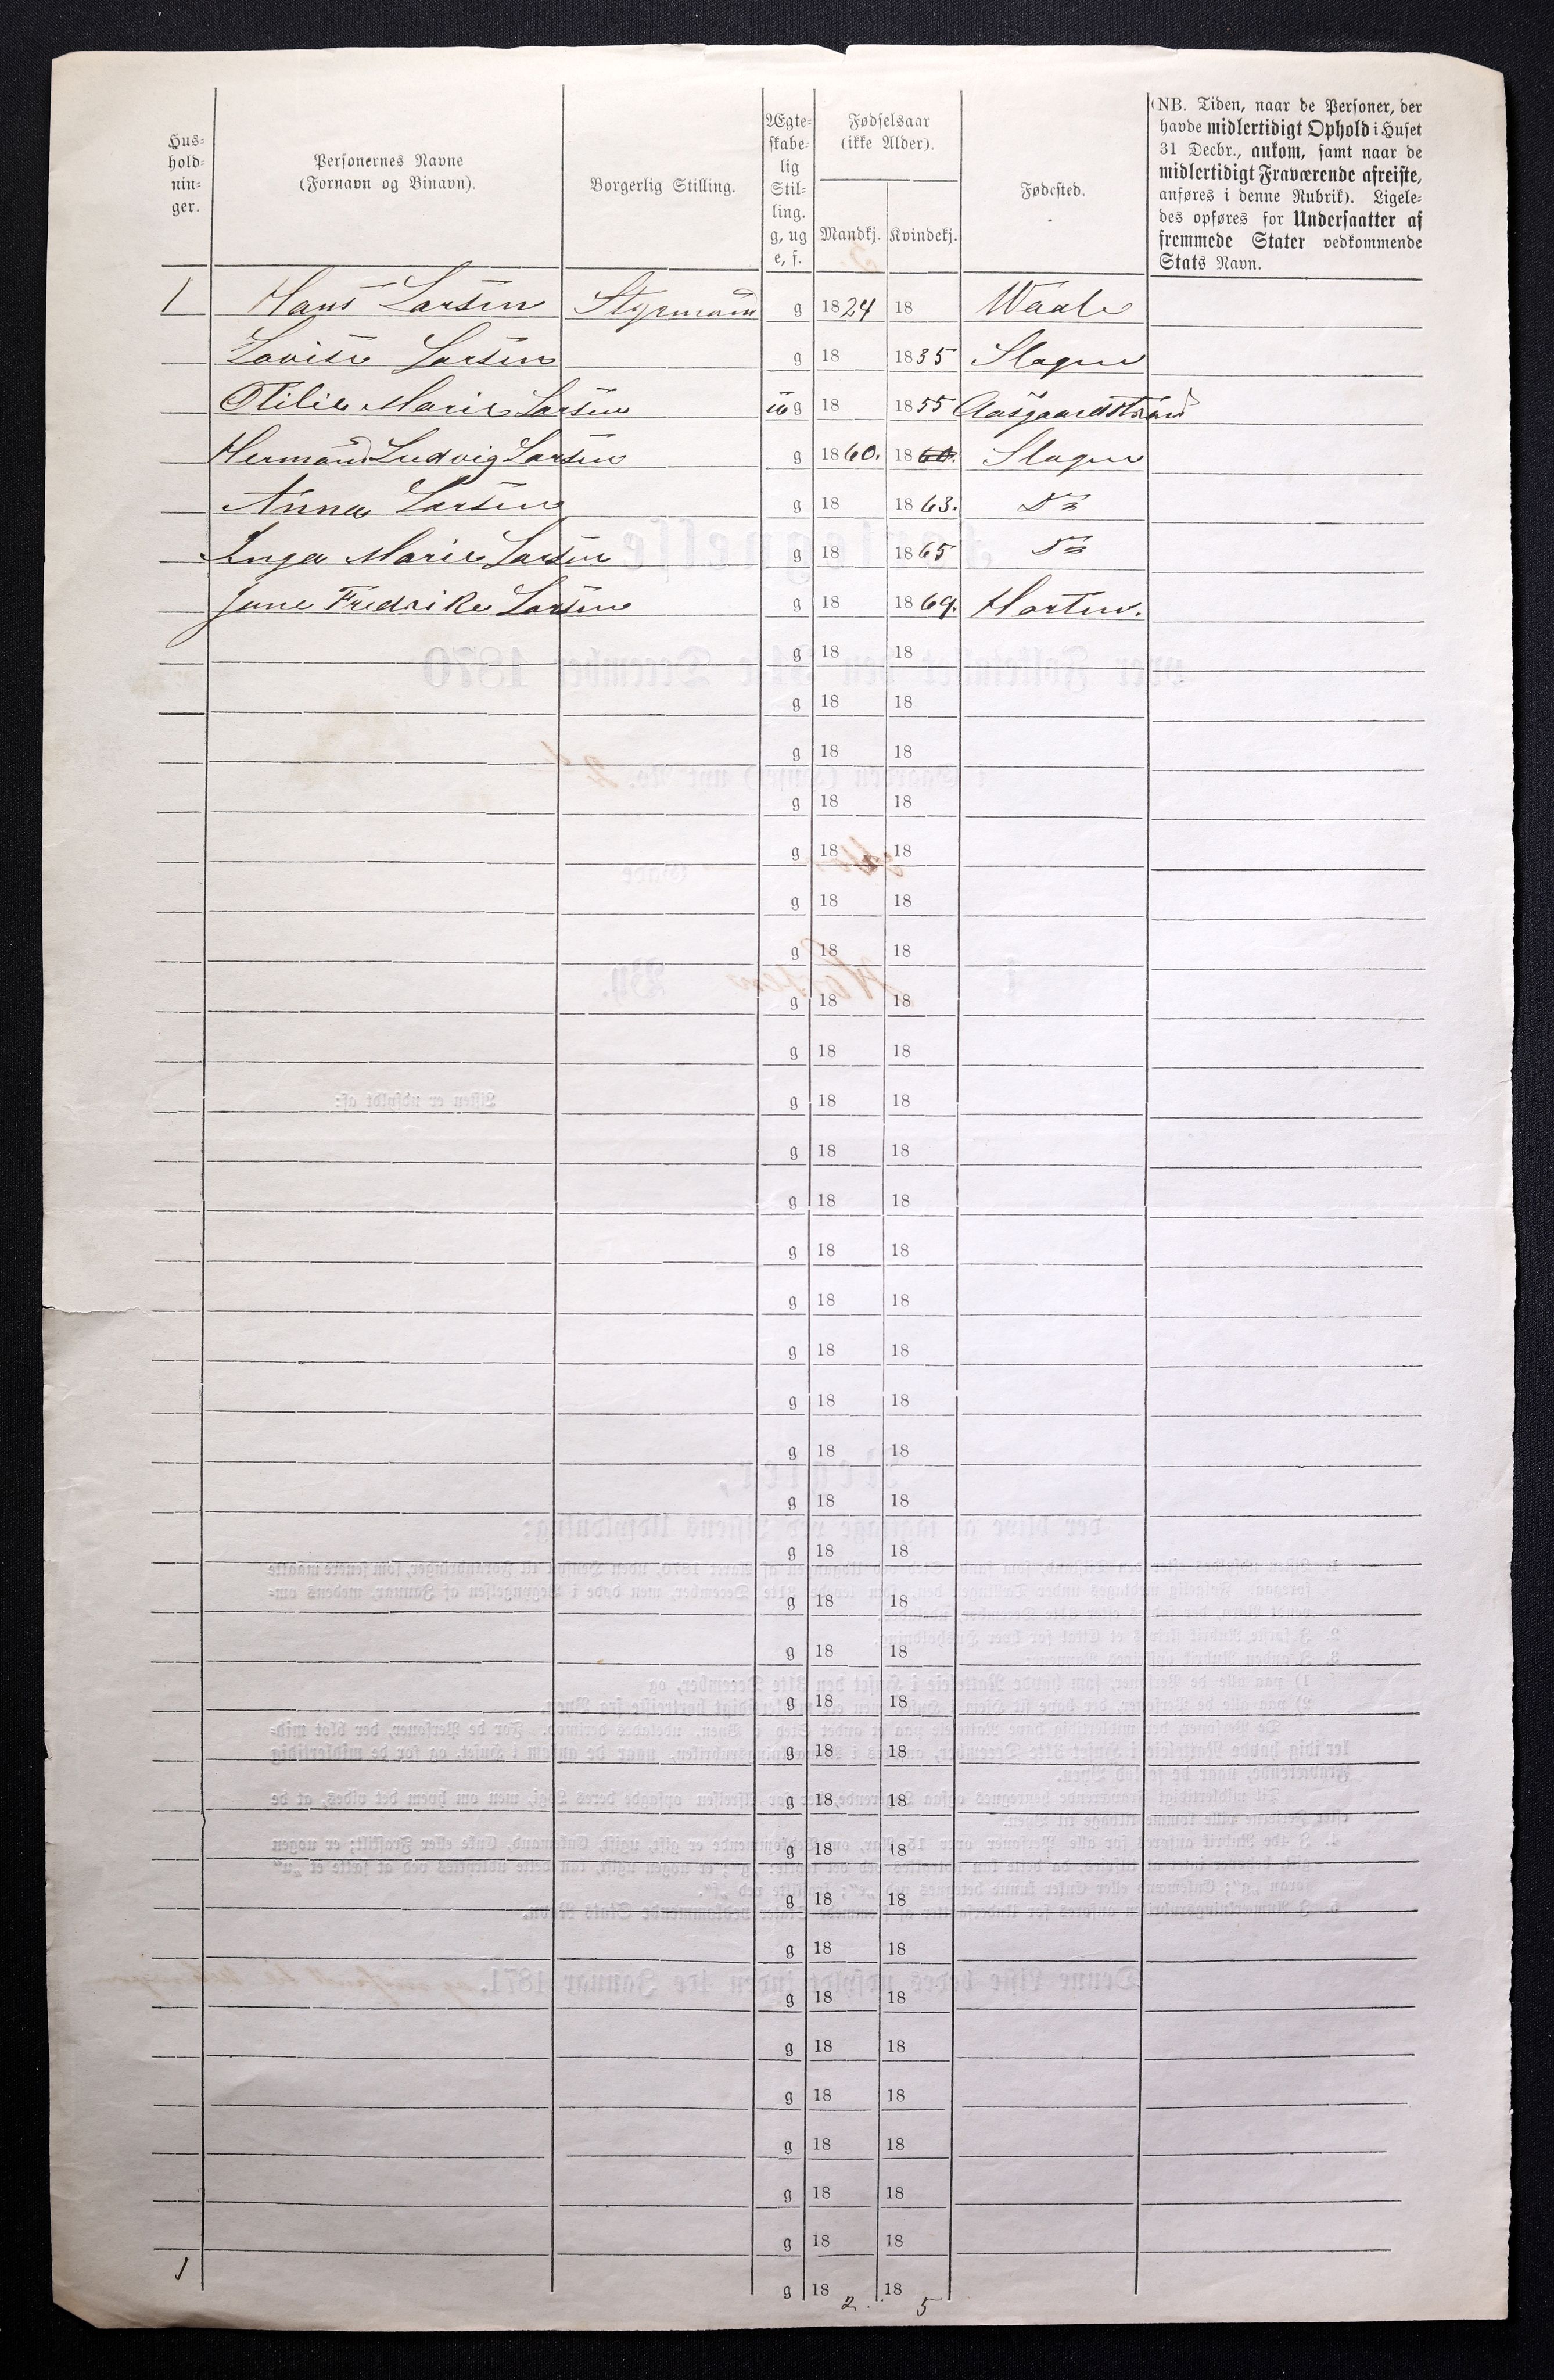 Hus=
hold=
nin=
ger.
Personernes Navne
(Fornavn og Binavn).
Borgerlig Stilling.
Ægte=
skabe=
lig
Stil=
ling.
g, ug
e, f.
Fødselsaar
(ikke Alder).
Mandkj. Kvindekj.
Fødested.
(NB. Tiden, naar de Personer, der
havde midlertidigt Ophold i Huset
31 Decbr., ankom, samt naar de
midlertidigt Fraværende afreiste,
anføres i denne Rubrik). Ligele=
des opføres for Undersaatter af
fremmede Stater vedkommende
Stats Navn.
1 Hans Larsen Styrmann g 1824 18 Waale
Lovise Larsen g 18 1835 Slagen
Otilie Marie Larsen ug 18 1855 Aasgaardstrand
Hermand Ludvig Larsen g 1860. 1860. Slagen
Anna Larsen g 18 1863. Do
Inga Marie Larsen g 18 1865 Do
Jane Fredrike Larsen g 18 1869. Horten.
g 18 18
g 18 18
g 18 18
g 18 18
g 18 18
g 18 18
g 18 18
g 18 18
g 18 18
g 18 18
g 18 18
g 18 18
g 18 18
g 18 18
g 18 18
g 18 18
g 18 18
g 18 18
g 18 18
g 18 18
g 18 18
g 18 18
g 18 18
g 18 18
g 18 18
g 18 18
g 18 18
g 18 18
g 18 18
g 18 18
g 18 18
g 18 18
g 18 18
1 g 18 18
2. 5